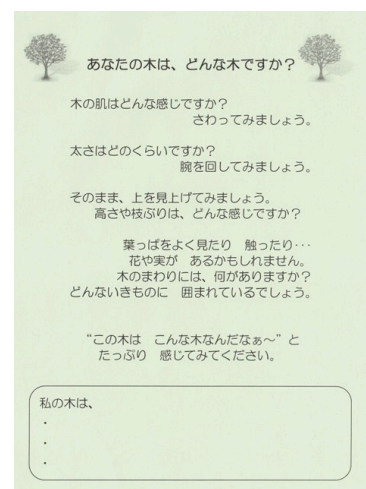 あなたの木は、どんな木ですか？
木の肌はどんな感じですか？
さわってみましょう。
太さはどのくらいですか？
腕を回してみましょう。
そのまま、上を見上げてみましょう。
高さや枝ぶりは、どんな感じですか？
葉っぱをよく見たり　触ったり･･･
花や実が　あるかもしれません。
木のまわりには、何がありますか？
どんないきものに　囲まれているでしょう。
“この木は　こんな木なんだなぁ～”と
たっぷり　感じてみてください。
私の木は、
・
・
・